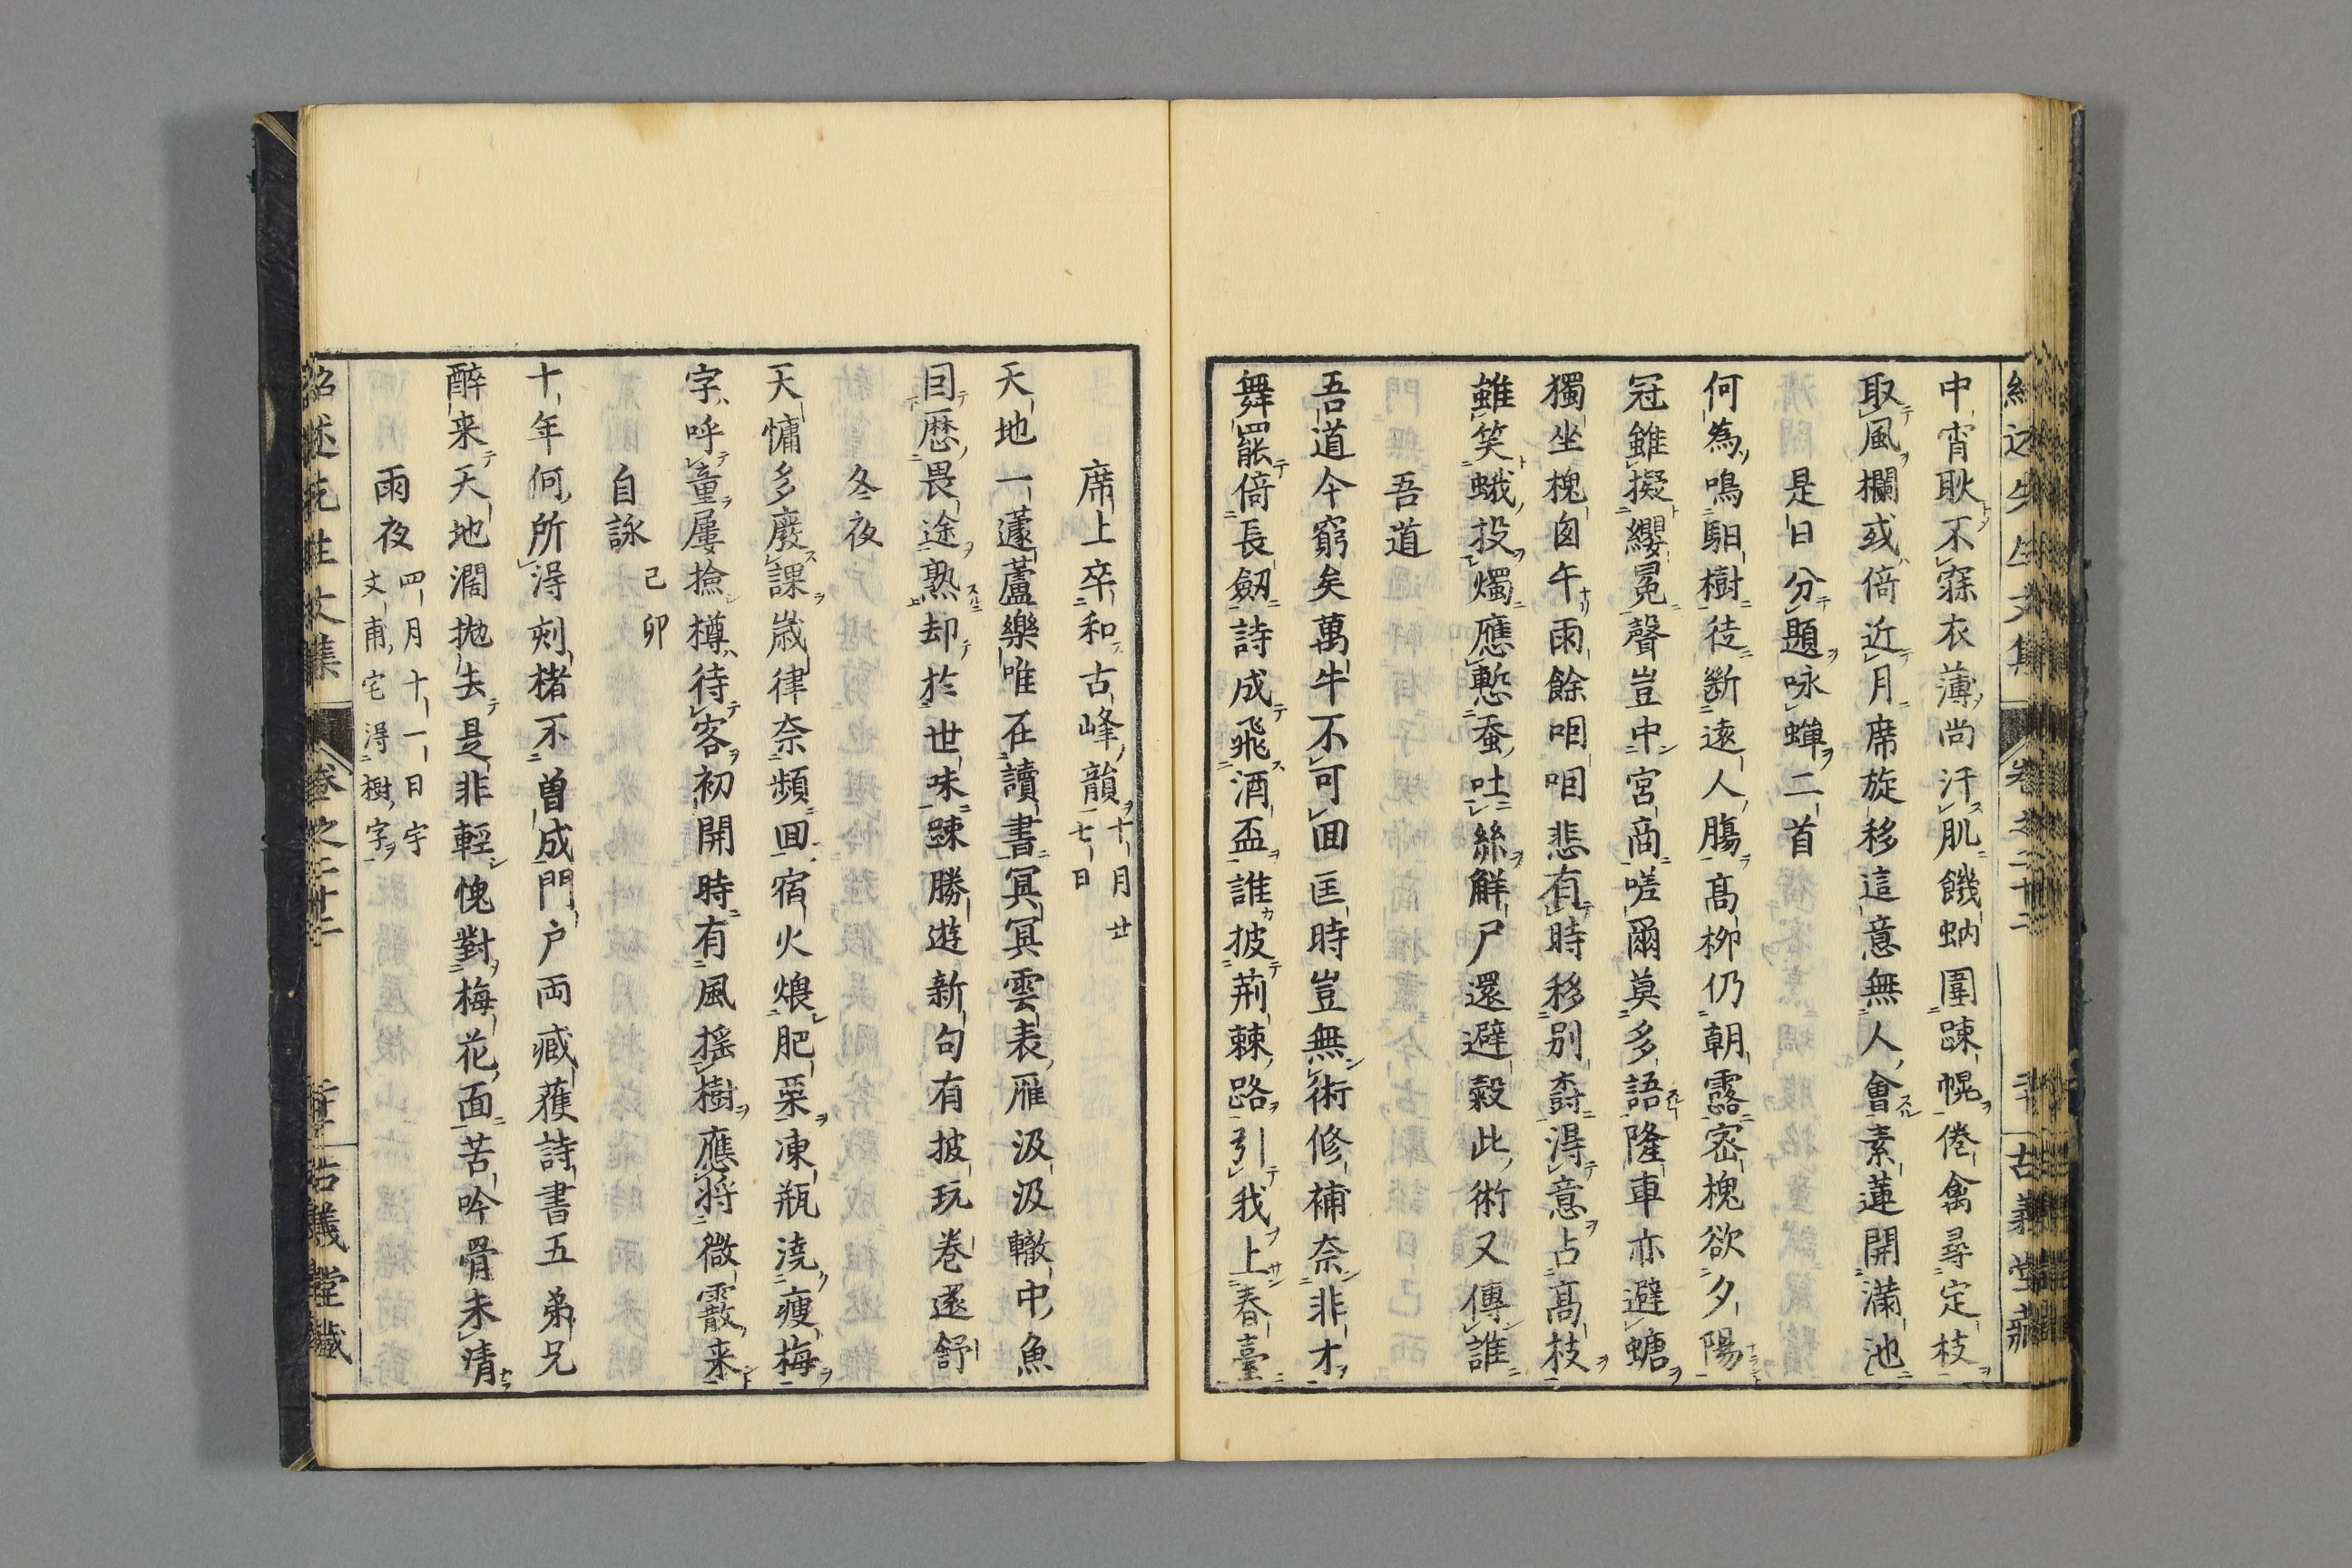 中宵耿不寐衣薄尚汗肌饑蚋圍踈幌倦禽尋定枝
取風欄或倚近月席旋移這意無人會素蓮開滿池
是日分題咏蟬二首
何為鳴駔樹徒斷遠人膓髙柳仍朝露密槐欲夕陽
冠雖擬纓冕聲豈中宮商嗟爾莫多語隆車亦避螗
獨坐槐囪午雨餘咽咽悲有時移别㚞淂意占髙枝
雖笑蛾投燭應慙蚕吐絲觧尸還避穀此術又傳誰
吾道
吾道今窮矣萬牛不可囬匡時豈無術修補奈非才
舞罷倚長劔詩成飛酒盃誰披荊棘路引我上春臺
席上卒和古峰韻十月廿七日
天地一蘧蘆樂唯在讀書冥冥雲表雁汲汲轍中魚
目歷畏途熟却於世味踈勝遊新句有披玩卷還舒
冬夜
天慵多廢課歲律奈頻囬宿火煨肥栗凍瓶澆瘦梅
字呼童屢撿樽待客初開時有風揺樹應將微霰来
自詠 己卯
十年何所淂刻楮不曽成門户兩臧蒦詩書五弟兄
醉来天地濶抛去是非輕愧對梅花面苦吟骨未清
雨夜 四月十一日宇文甫宅淂樹字
紹述先生文集 卷之二十二 古義堂藏